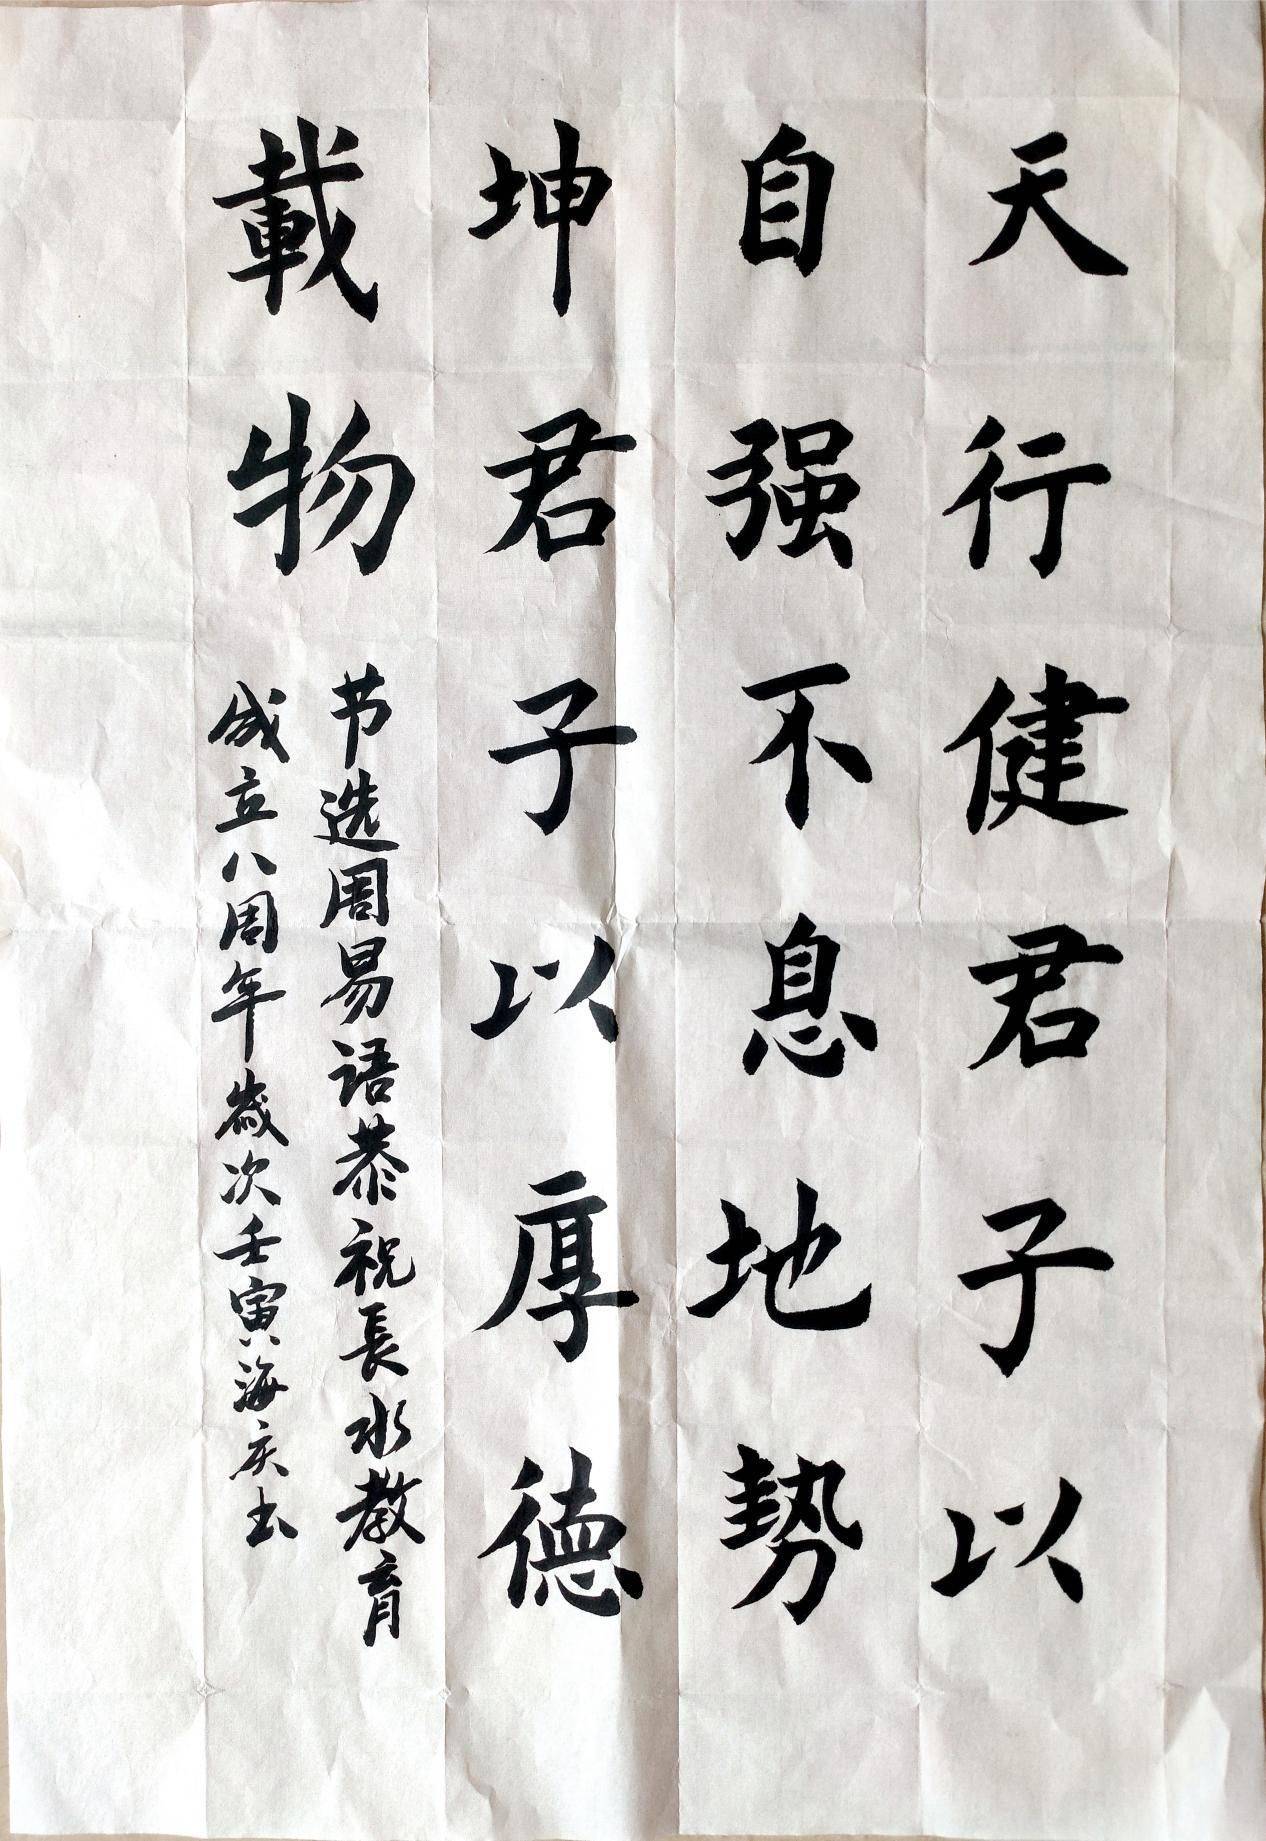 天行健君子以
自强不息地势
坤君子以厚德
載物
节选周易语恭祝長水教育
成立八周年岁次壬寅海庆书